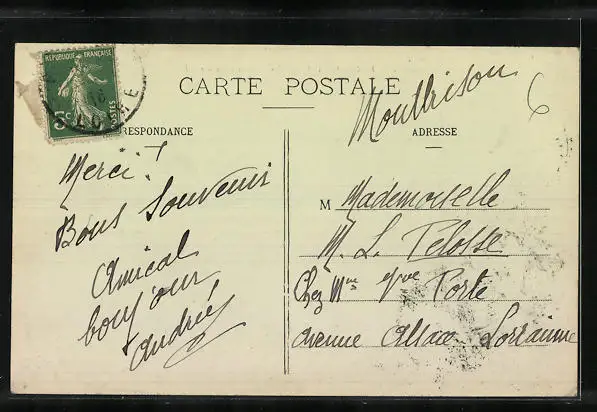 REPUBLIQUE FRANÇAISE
5c
POSTES
LOIRE
CARTE POSTALE
Montbrison
6
RRESPONDANCE
ADRESSE
Merci!
Bons Souvenirs
Amical
bonjour
Andrée
M Mademoiselle
M. L. Pelosse
Chez Mme Vve Porte
Avenue Alsace Lorraine